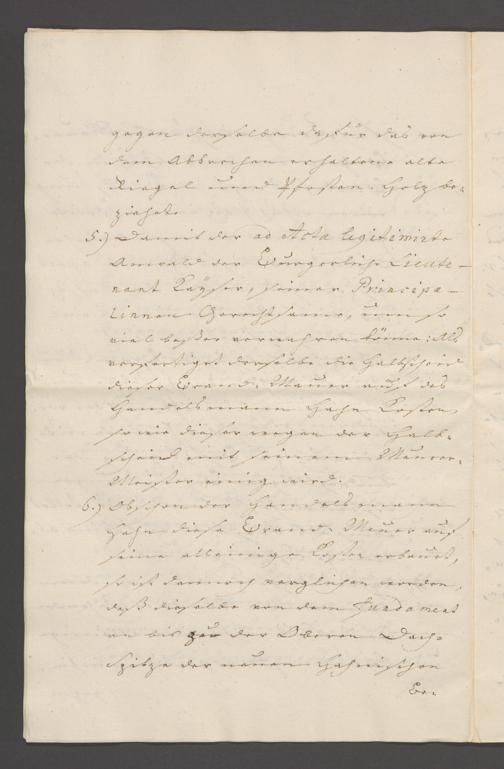 gegen derselbe dafür das von
dem Abbrechen erhaltene alte
Riegel und Pfosten-Holz be-
ziehet.
5.) Damit der ad Acta legitimirte
Anwald der Bürgerliche Lieute-
nant Kayser, seiner Principa-
linnen Gerechtsame, um so
viel besser verwahren könne: Als
verfertiget derselbe die Halbscheid
dieser Brand-Mauer auf des
Handelsmann Hahn Kosten,
so wie dieser wegen der Halb-
scheid mit seinem Maurer-
Meister einig wird.
6.) Obschon der Handelsmann
Hahn diese Brand-Mauer auf
seine alleinige Kosten erbauet,
so ist dennoch verglichen worden,
daß dieselbe von dem Fundament
an bis zur der Oberen Dach-
spitze der neuen Hahnischen
Be-